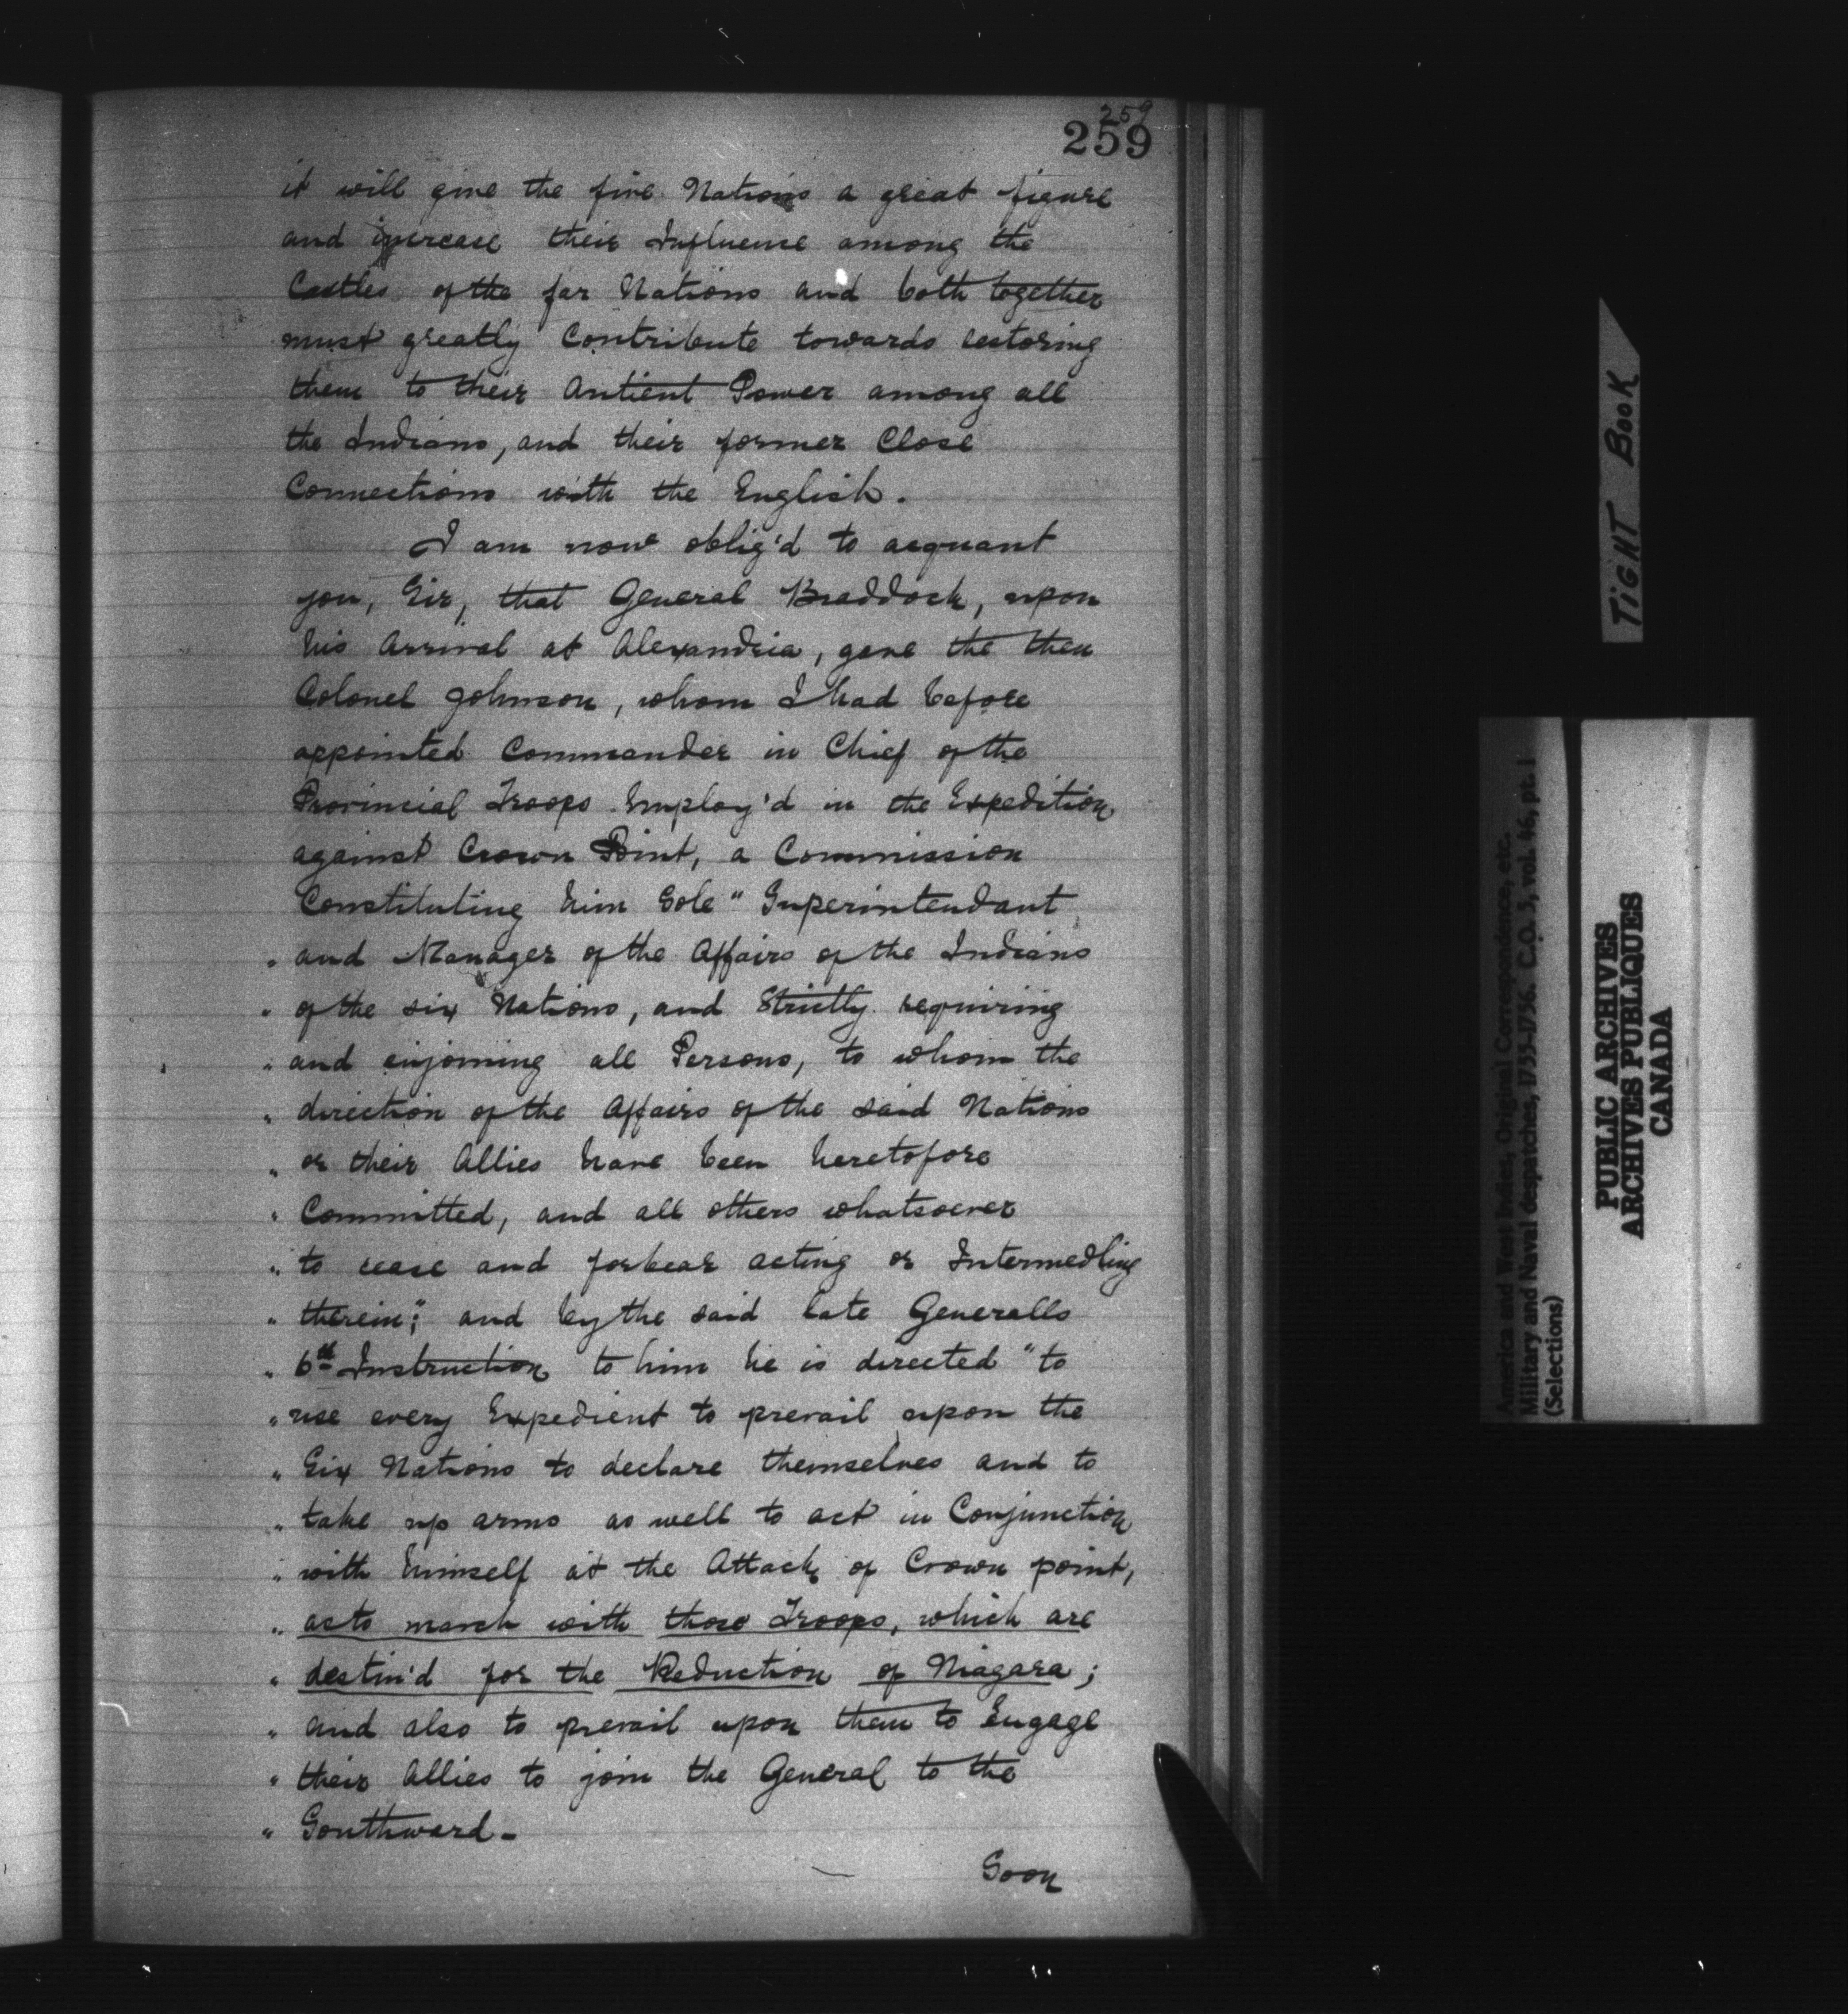 259
259
it will give the five Nations a great figure
and increase their Influence among the
Castles of the far Nations and both together
must greatly Contribute towards restoring
them to their Antient Power among all
the Indians, and their former Close
Connections with the English.
I am now oblig'd to acquant
you, Sir, that General Braddock, upon
his Arrival at Alexandria, gave the then
Colonel Johnson, whom I had before
appointed Commander in Chief of the
Provincial Troops Employ'd in the Expedition
against Crown Point, a Commission
Constituting him Sole "Superintendant
" and Manager of the Affairs of the Indians
" of the six Nations, and Strictly requiring
" and enjoining all Persons, to whom the
" direction of the Affairs of the said Nations
" or their Allies have been heretofore
" Committed, and all others whatsoever
" to cease and forbear acting or Intermedling
" therein;" and by the said late Generalls
" 6th Instruction to him he is directed "to
" use every Expedient to prevail upon the
" Six Nations to declare themselves and to
" take up arms as well to act in Conjunction
" with himself at the Attack of Crown point,
" as to march with those Troops, which are
" destin'd for the Reduction of Niagara;
" and also to prevail upon them to Engage
" their Allies to join the General to the
" Southward-
Soon
TIGHT BOOK
America and West Indies, Original Correspondence, etc.
Military and Naval despatches, 1755-1756. C.O. 5, vol. 46, pt. 1
(Selections)
PUBLIC ARCHIVES
ARCHIVES PUBLIQUES
CANADA